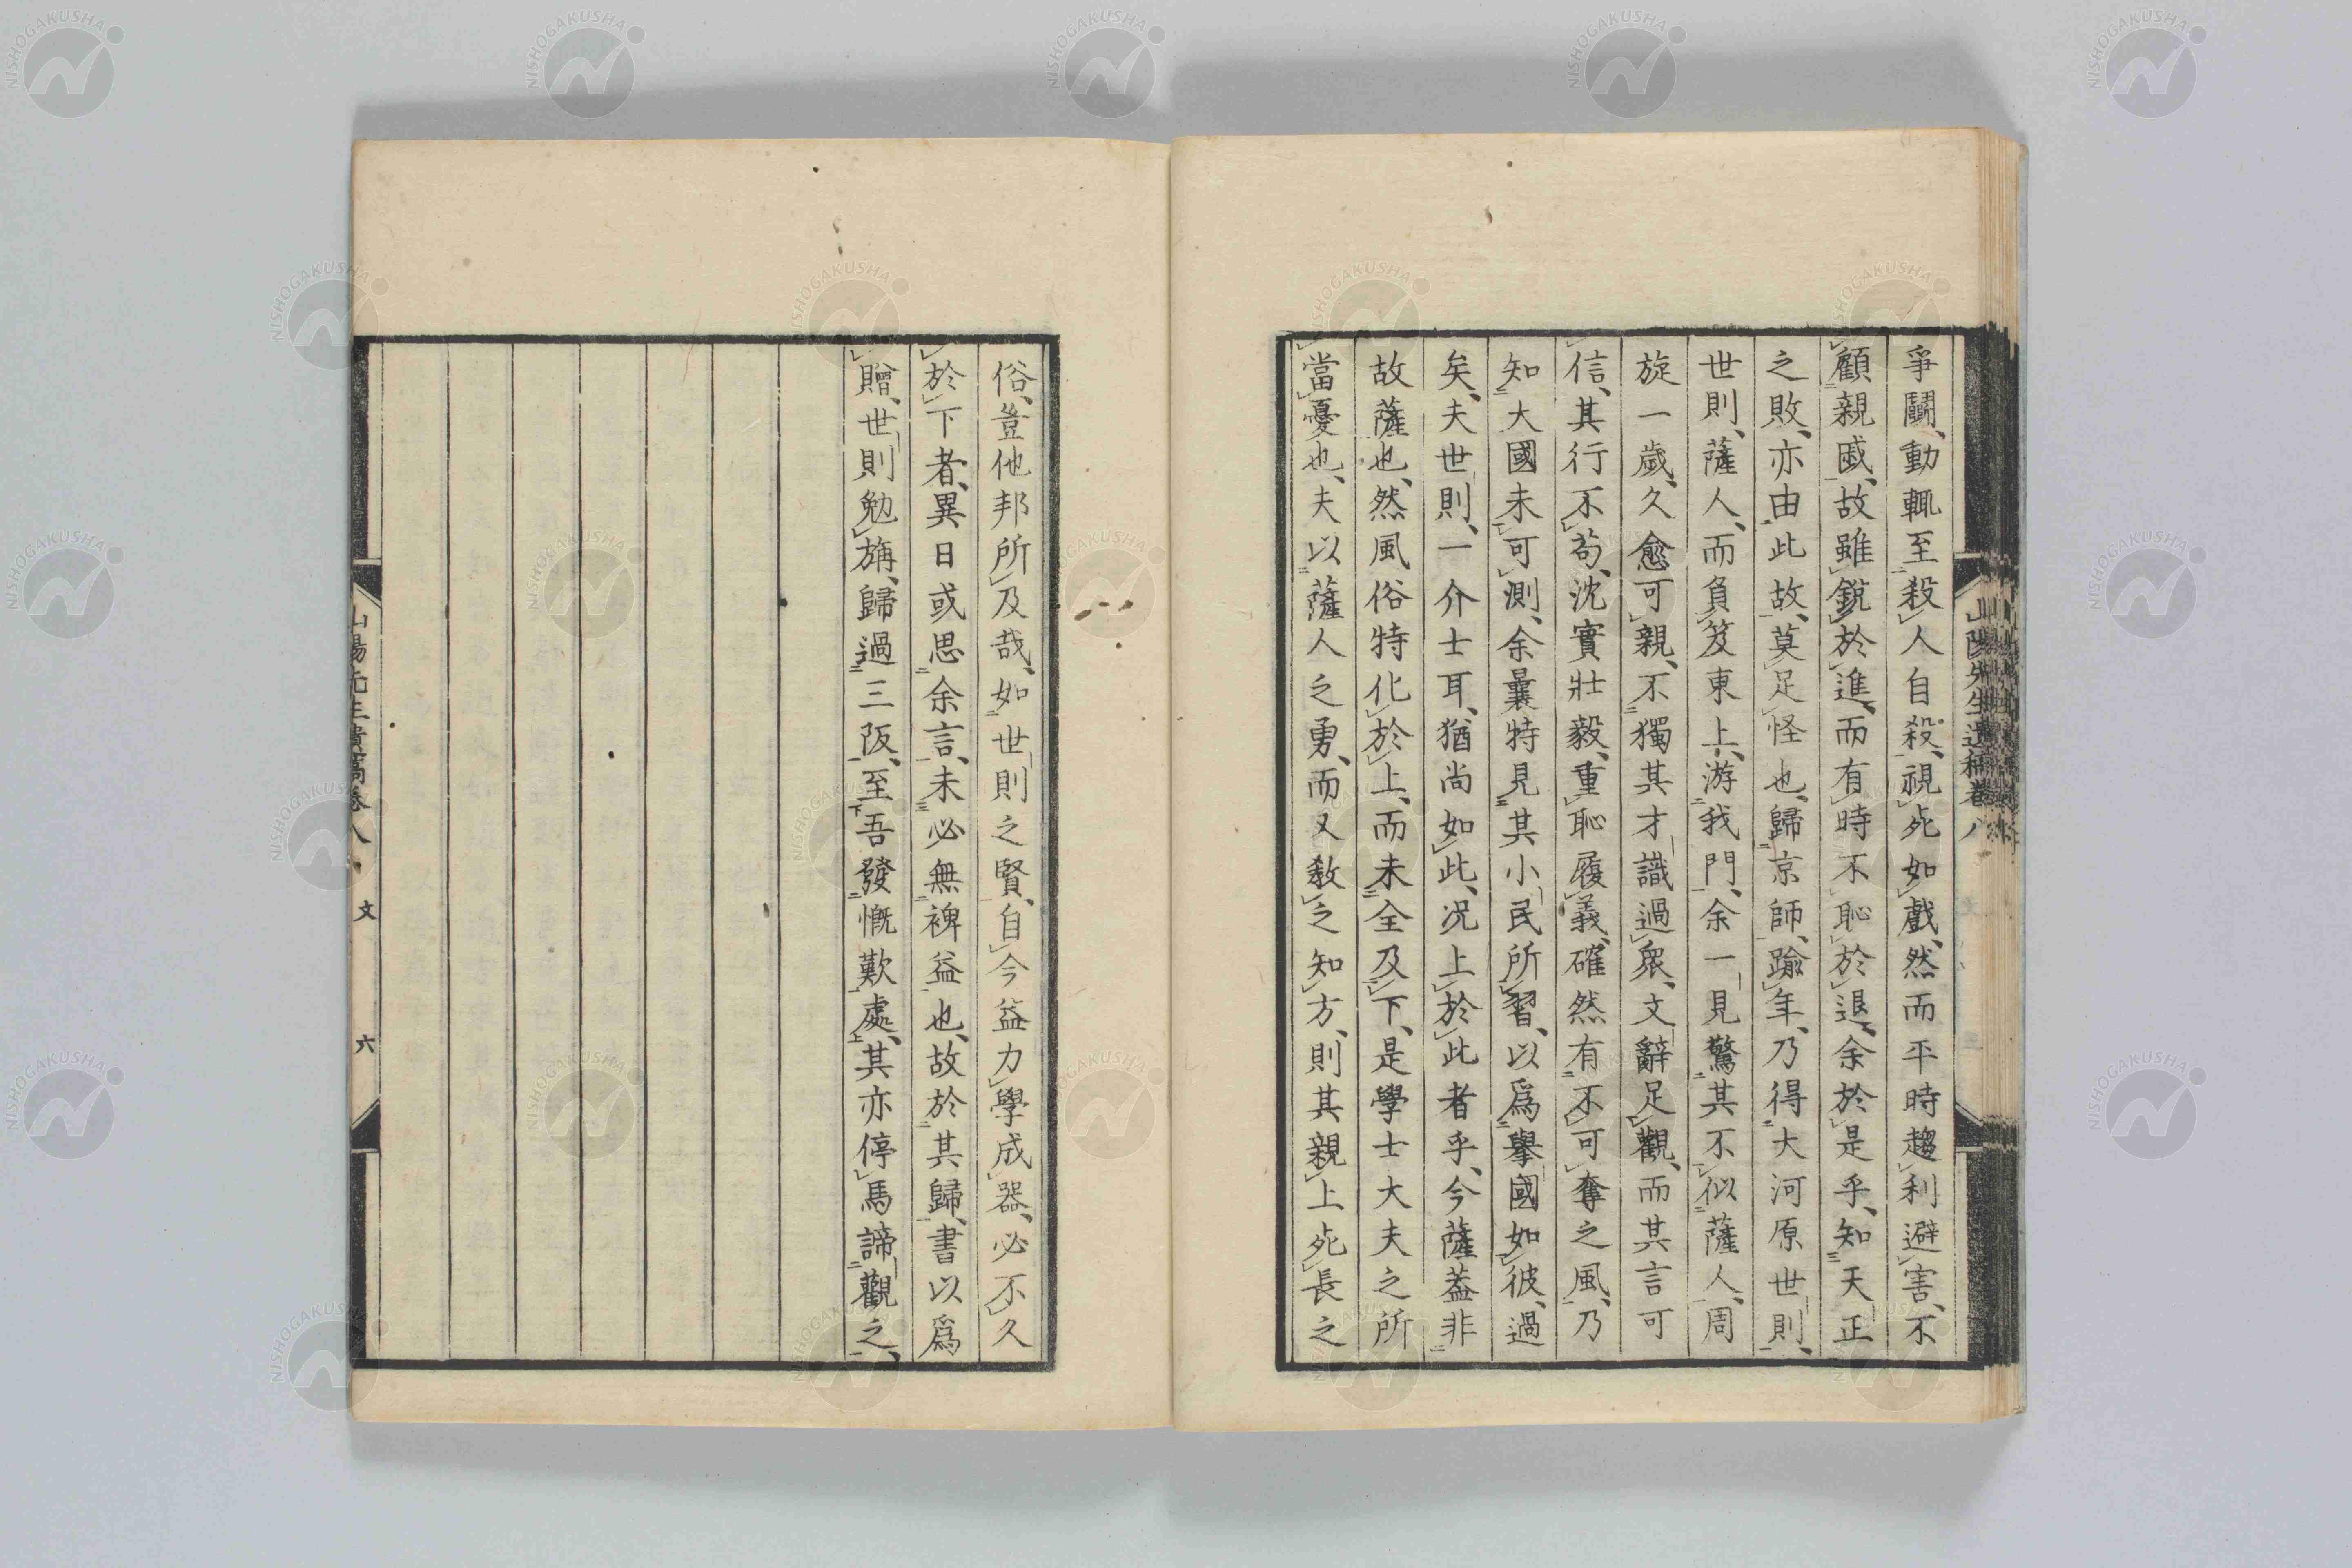 爭鬭、動輒至殺人自殺、視死如戲、然而平時趨利避害、不
顧親戚、故雖銳於進、而有時不恥於退、余於是乎、知天正
之敗、亦由此故、莫足怪也、歸京師、踰年、乃得大河原世則、
世則、薩人、而負笈東上、游我門、余一見驚其不似薩人、周
旋一歲、久愈可親、不獨其才識過衆、文辭足觀、而其言可
信、其行不苟、沈實壯毅、重恥履義、確然有不可奪之風、乃
知大國未可測、余曩特見其小民所習、以爲擧國如彼、過
矣、夫世則、一介士耳、猶尚如此、况上於此者乎、今薩蓋非
故薩也、然風俗特化於上、而未全及下、是學士大夫之所
當憂也、夫以薩人之勇、而又敎之知方、則其親上死長之
俗、豈他邦所及哉、如世則之賢、自今益力學成器、必不久
於下者、異日或思余言、未必無裨益也、故於其歸、書以爲
贈、世則勉旃、歸過三阪、至吾發慨歎處、其亦停馬諦觀之、
山陽先生遺稿卷八
山陽先生遺稿卷八 文 六
NISHOGAKUSHA